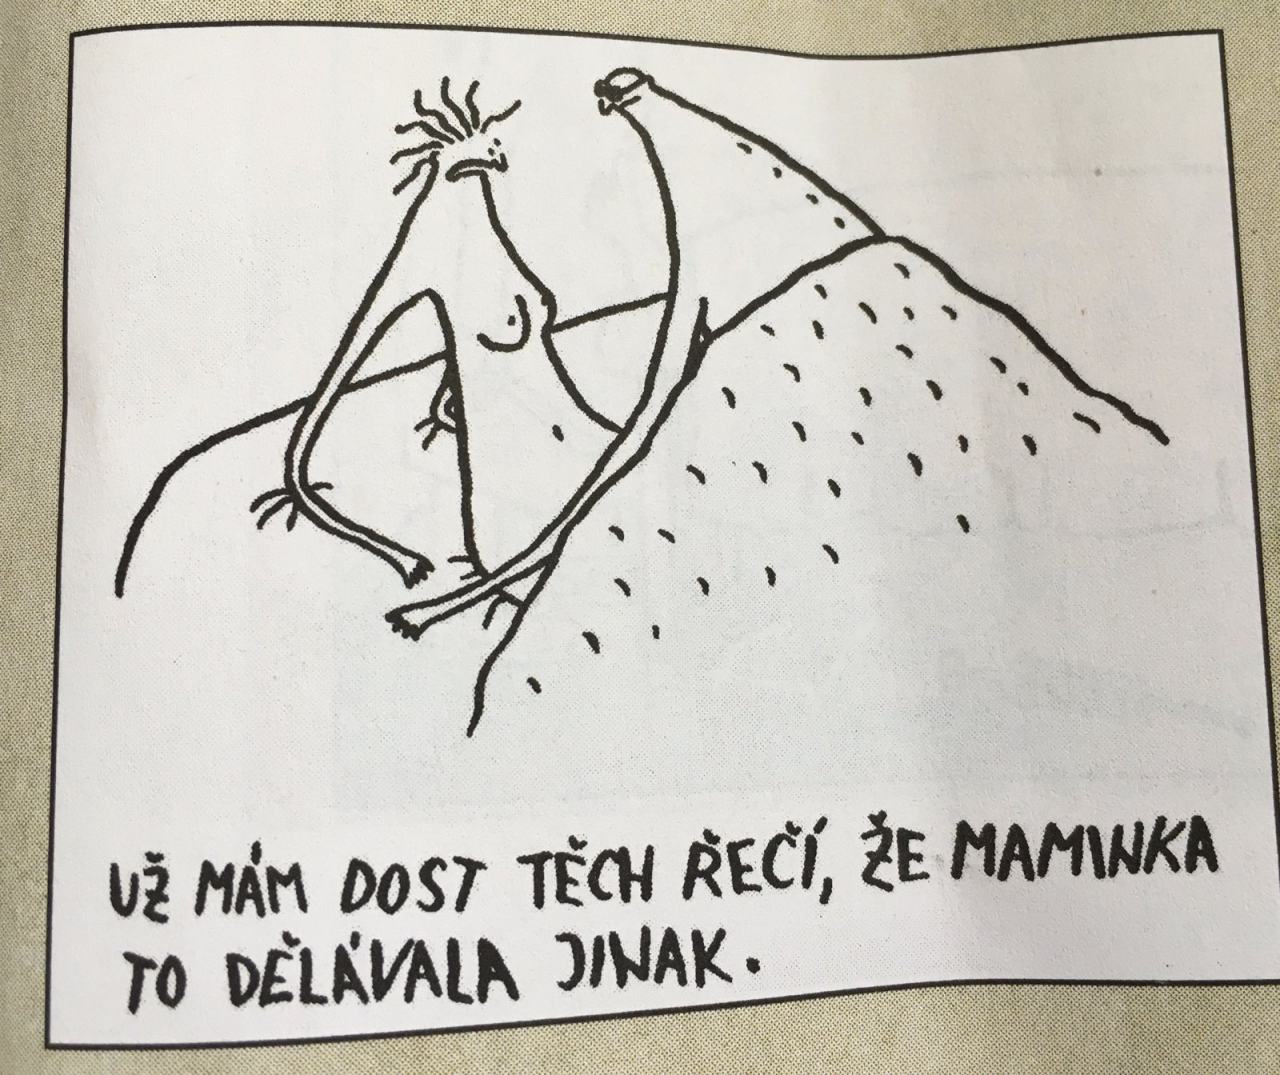 UŽ MÁM DOST TĚCH ŘEČÍ, ŽE MAMINKA
TO DĚLÁVALA JINAK.